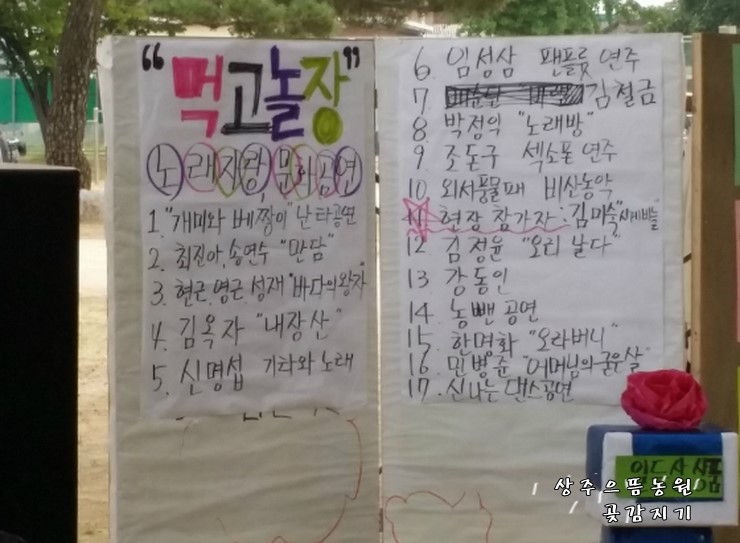 "먹고놀장"
노래자랑, 문화공연
1. "개미와 베짱이" 난타공연
2. 최진아, 송연수 "만담"
3. 현근, 영근 성재 "바다의 왕자"
4. 김옥자 "내장산"
5. 신명섭 기타와 노래
6. 임성삼 팬플룻 연주
7 김철금
8 박정익 "노래방"
9 조돈구 섹소폰 연주
10 외서풍물패 비산농악
11 현장 참가자: 김미숙
12 김정윤 "오리 날다"
13 강동인
14 농뺀 공연
15 한명화 "오라버니"
16. 민병준 "어머님의 굵은살"
17. 신나는 댄스공연
상주으뜸농원
곶감지기